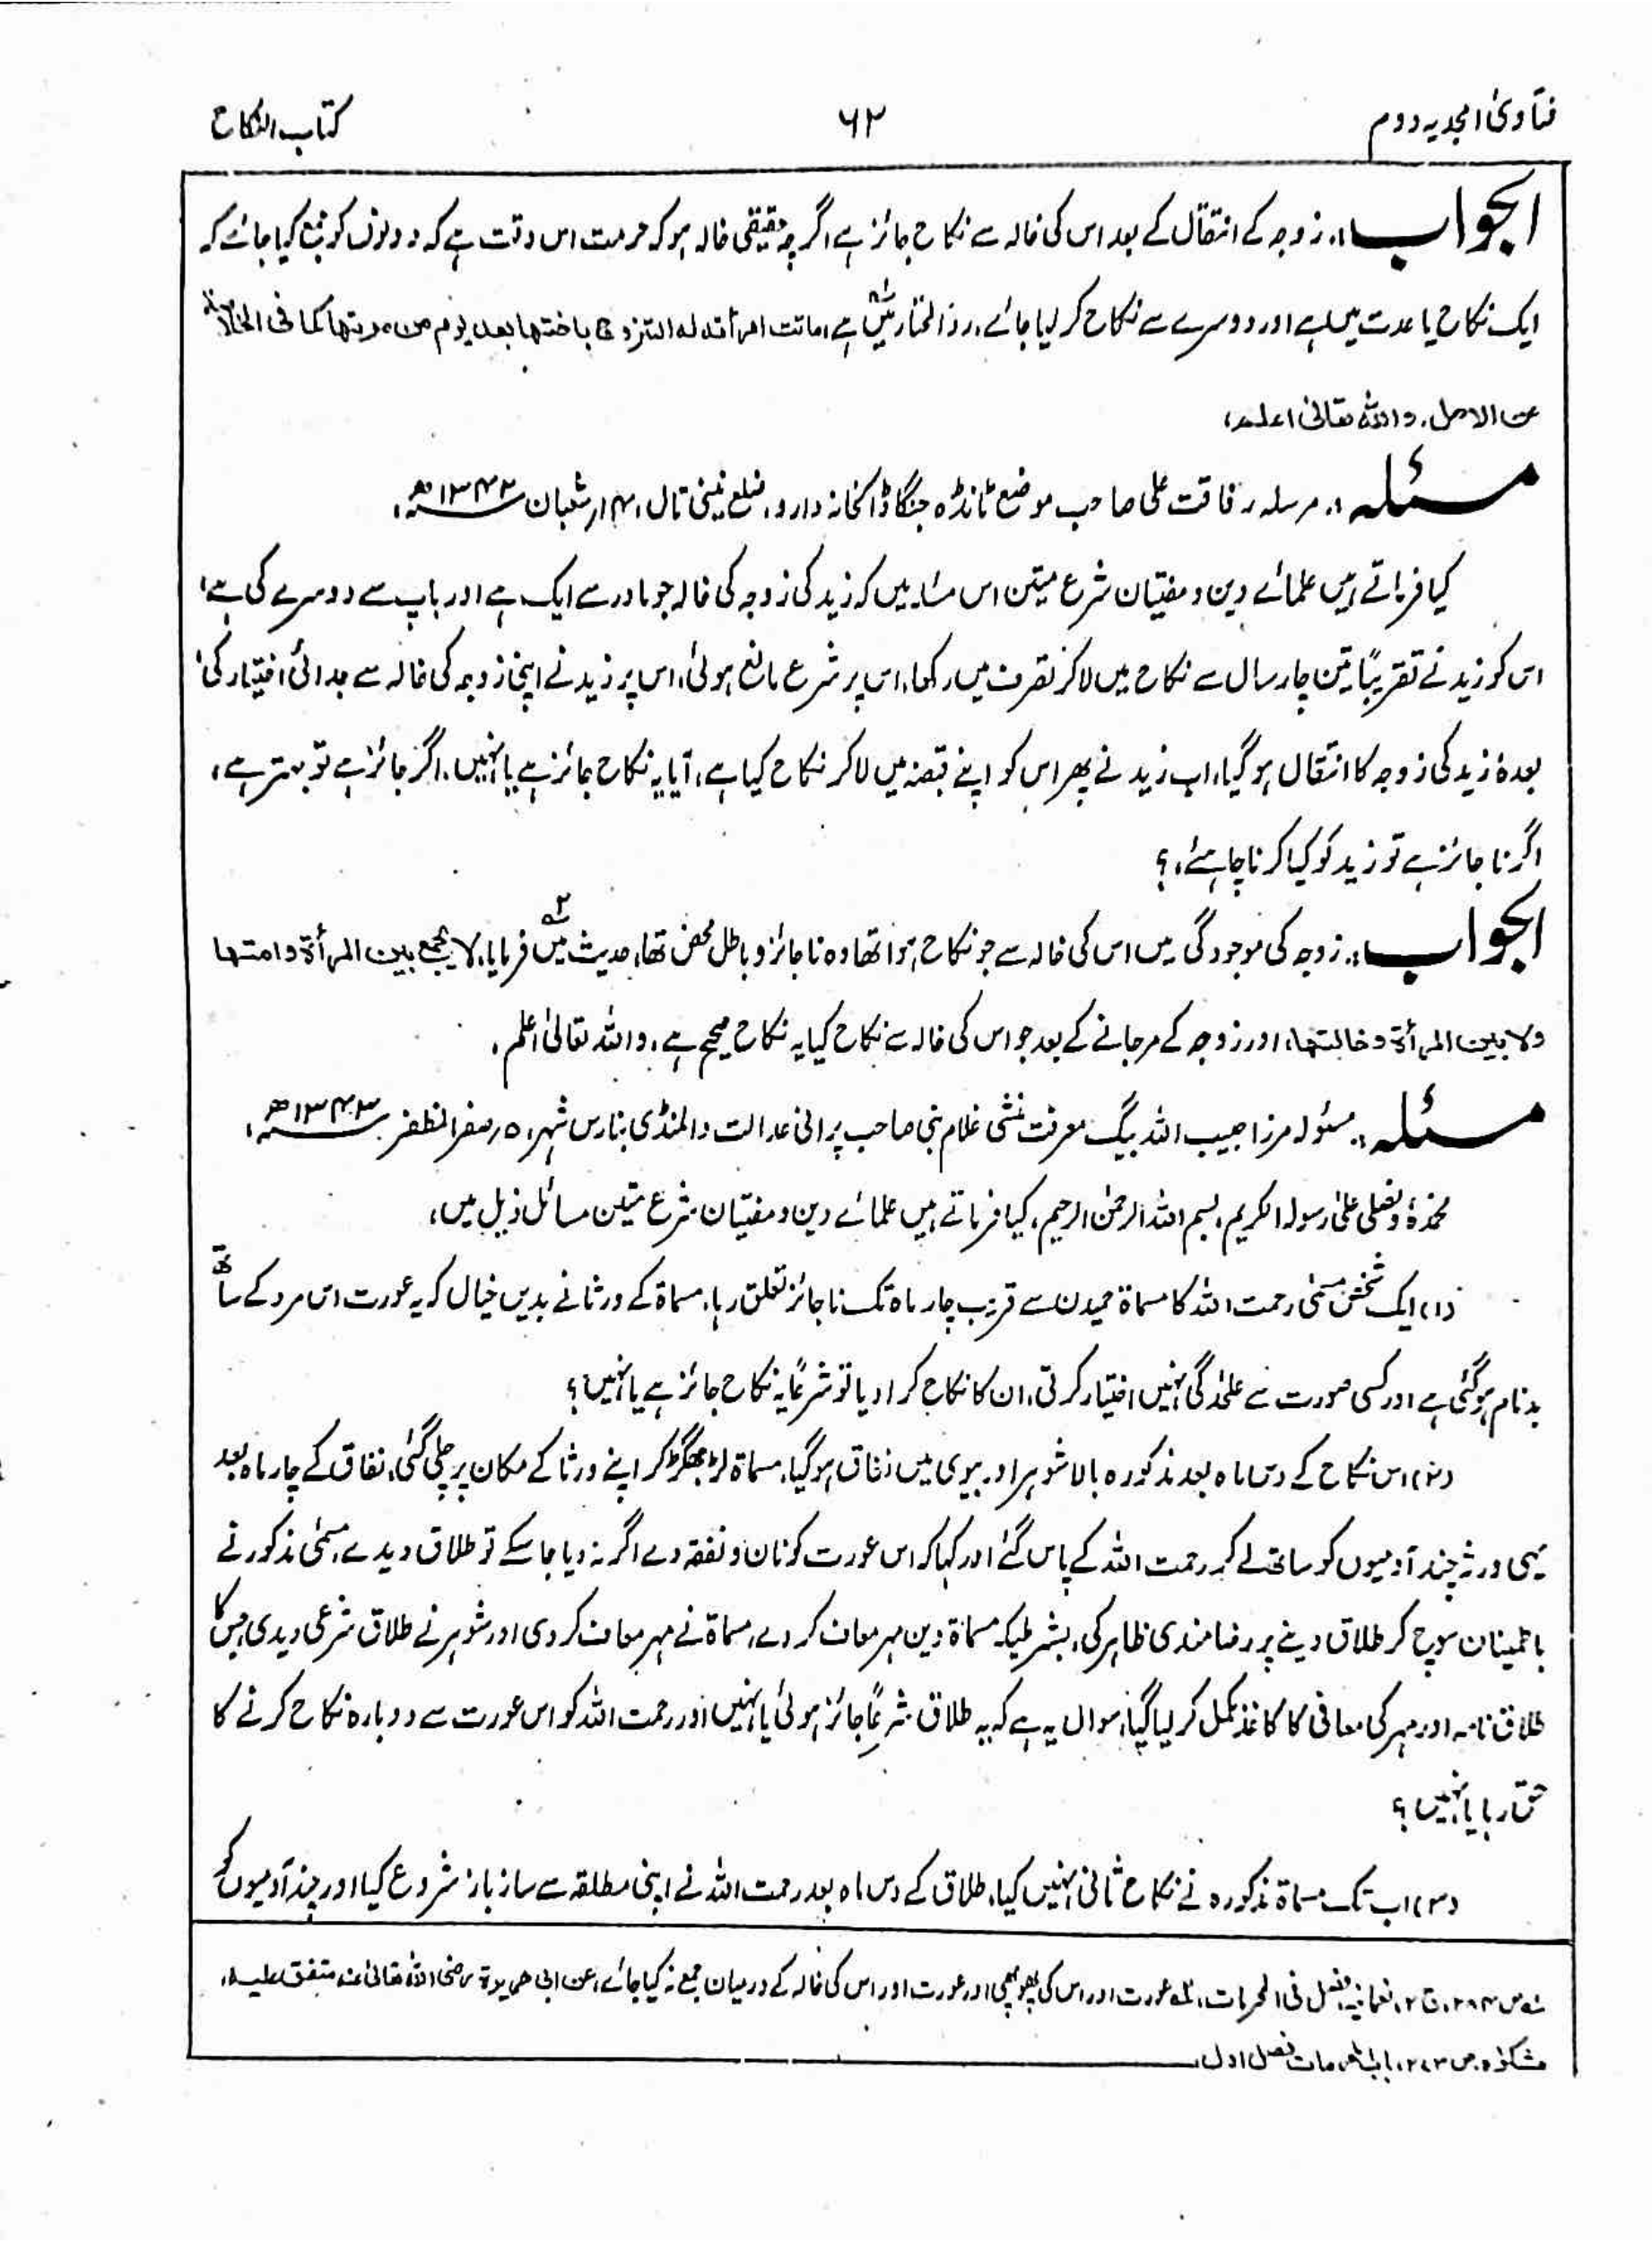 فتاویٰ امجدیہ دوم
۶۲
کتاب النکاح
الجواب:۔ زوجہ کے انتقال کے بعد اس کی خالہ سے نکاح جائز ہے اگرچہ حقیقی خالہ ہو کہ حرمت اس وقت ہے کہ دونوں کو جمع کیا جائے کہ
ایک نکاح یا عدت میں ہے اور دوسرے سے نکاح کر لیا جائے، ردالمختار میں ہے ماتت امرأتہ لہ التزوج باختہا بعد یوم من موتہا کما فی الخلاصۃ
عن الاصل، واللہ تعالیٰ اعلم،
مسئلہ:۔ مرسلہ رفاقت علی صاحب موضع ٹانڈہ جنگا ڈاکخانہ دارو، ضلع نینی تال، ۱۴ ر شعبان ۱۳۴۲ھ،
کیا فرماتے ہیں علمائے دین و مفتیان شرع متین اس مسئلہ میں کہ زید کی زوجہ کی خالہ جو مادر سے ایک ہے اور باپ سے دوسرے کی ہے،
اس کو زید نے تقریباً تین چار سال سے نکاح میں لا کر تصرف میں رکھا، اس پر شرع مانع ہوئی، اس پر زید نے اپنی زوجہ کی خالہ سے جدائی اختیار کی،
بعدہٗ زید کی زوجہ کا انتقال ہو گیا، اب زید نے پھر اس کو اپنے قبضہ میں لا کر نکاح کیا ہے، آیا یہ نکاح جائز ہے یا نہیں، اگر جائز ہے تو بہتر ہے،
اگر ناجائز ہے تو زید کو کیا کرنا چاہئے،؟
الجواب:۔ زوجہ کی موجودگی میں اس کی خالہ سے جو نکاح ہوا تھا وہ ناجائز و باطل محض تھا، حدیث میں ۲ فرمایا، لا یجمع بین المرأۃ وامتہا
ولا بین المرأۃ وخالتہا، اور زوجہ کے مرجانے کے بعد جو اس کی خالہ سے نکاح کیا یہ نکاح صحیح ہے، واللہ تعالیٰ اعلم،
مسئلہ:۔ مسئولہ مرزا حبیب اللہ بیگ معرفت منشی غلام نبی صاحب پرانی عدالت دالمنڈی بنارس شہر، ۵ ر صفر المظفر ۱۳۴۳ھ،
نحمدہٗ ونصلی علیٰ رسولہ الکریم، بسم اللہ الرحمٰن الرحیم، کیا فرماتے ہیں علمائے دین و مفتیان شرع متین مسائل ذیل میں،
(۱) ایک شخص مسمّٰی رحمت اللہ کا مسماۃ حمیدن سے قریب چار ماہ تک ناجائز تعلق رہا، مسماۃ کے ورثا نے بدیں خیال کہ یہ عورت اس مرد کے ساتھ
بدنام ہوگئی ہے اور کسی صورت سے علٰحدگی نہیں اختیار کرتی، ان کا نکاح کرا دیا تو شرعًا یہ نکاح جائز ہے یا نہیں؟
(۲) اس نکاح کے دس ماہ بعد مذکورہ بالا شوہر اور بیوی میں نفاق ہوگیا، مسماۃ لڑ جھگڑ کر اپنے ورثا کے مکان پر چلی گئی، نفاق کے چار ماہ بعد
یہی ورثہ چند آدمیوں کو ساتھ لے کر رحمت اللہ کے پاس گئے اور کہا کہ اس عورت کو نان و نفقہ دے اگر نہ دیا جا سکے تو طلاق دیدے، مسمّٰی مذکور نے
باطمینان سوچ کر طلاق دینے پر رضامندی ظاہر کی، بشرطیکہ مسماۃ دین مہر معاف کر دے، مسماۃ نے مہر معاف کر دی اور شوہر نے طلاق شرعی دیدی جس کا
طلاق نامہ اور مہر کی معافی کا کاغذ مکمل کر لیا گیا، سوال یہ ہے کہ یہ طلاق شرعًا جائز ہوئی یا نہیں اور رحمت اللہ کو اس عورت سے دوبارہ نکاح کرنے کا
حق رہا یا نہیں؟
(۳) اب تک مسماۃ مذکورہ نے نکاح ثانی نہیں کیا، طلاق کے دس ماہ بعد رحمت اللہ نے اپنی مطلقہ سے ساز باز شروع کیا اور چند آدمیوں کو
ص ۲۸۴، ج ۲، نعمانیہ فصل فی المحرمات، عورت اور اس کی پھوپھی اور عورت اور اس کی خالہ کے درمیان جمع نہ کیا جائے، عن ابی ھریرۃ رضی اللہ تعالیٰ عنہ متفق علیہ،
مشکوٰۃ، ص ۲۷۳، باب المحرمات فصل اول،